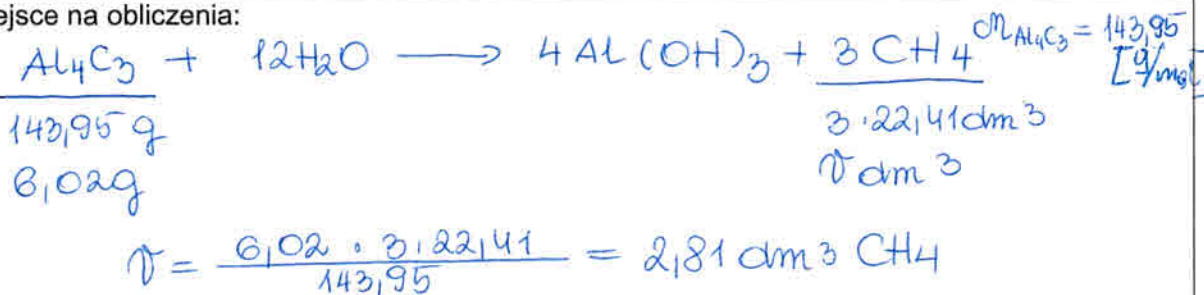 ejsce na obliczenia:
Al4C3 + 12H2O ⟶ 4 Al(OH)3 + 3 CH4 MAl4C3 = 143,95 [g/mol]
143,95 g 3·22,41dm3
6,02g V dm3
V = 6,02 · 3·22,41 / 143,95 = 2,81 dm3 CH4